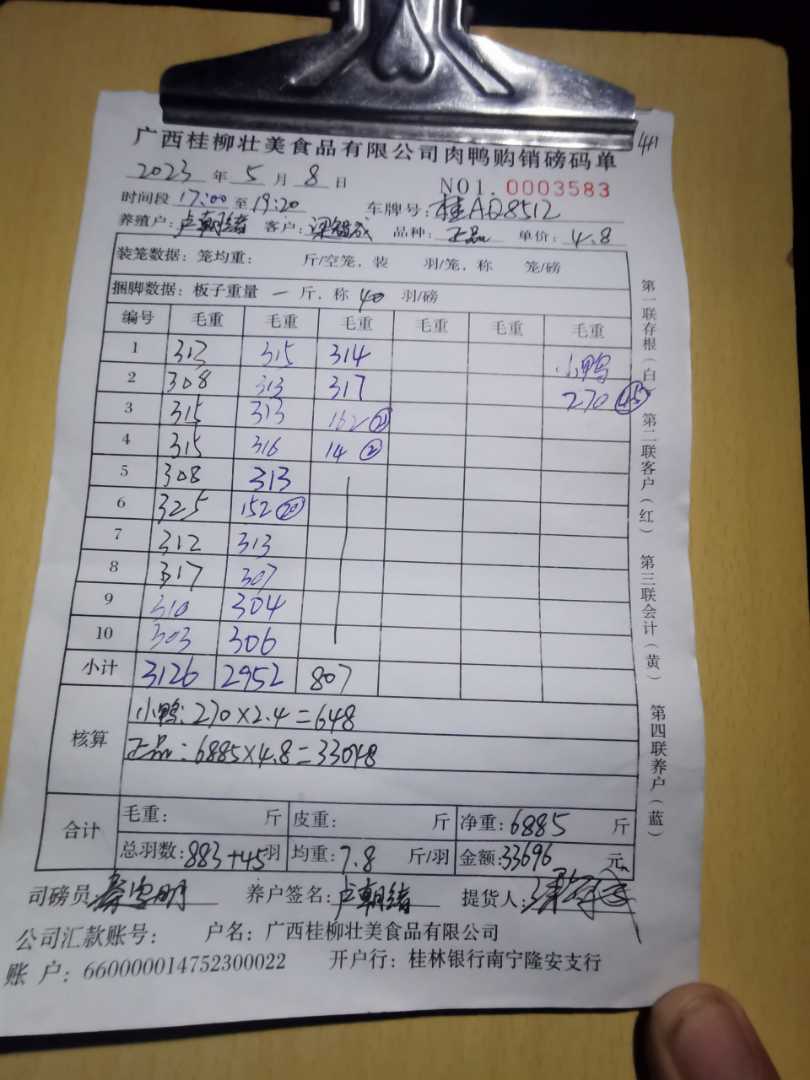 411
广西桂柳壮美食品有限公司肉鸭购销磅码单
2023 年 5 月 8 日 NO1. 0003583
时间段 17:00 至 19:20 车牌号: 桂AQ8512
养殖户: 卢朝绪 客户: 品种: 正品 单价: 4.8
装笼数据: 笼均重: 斤/空笼, 装 羽/笼, 称 笼/磅
捆脚数据: 板子重量 一 斤, 称 40 羽/磅
编号 毛重 毛重 毛重 毛重 毛重 毛重
1 313 315 314 小鸭
2 308 313 317 270 45
3 315 313 162 21
4 315 316 14 2
5 308 313
6 325 152 20
7 312 313
8 317 307
9 310 304
10 303 306
小计 3126 2952 807
核算 小鸭: 270×2.4=648
正品: 6885×4.8=33048
合计 毛重: 斤 皮重: 斤 净重: 6885 斤
总羽数: 883+45 羽 均重: 7.8 斤/羽 金额: 33696 元
司磅员: 养户签名: 卢朝绪 提货人:
公司汇款账号: 户名: 广西桂柳壮美食品有限公司
账 户: 660000014752300022 开户行: 桂林银行南宁隆安支行
第一联存根(白) 第二联客户(红) 第三联会计(黄) 第四联养户(蓝)